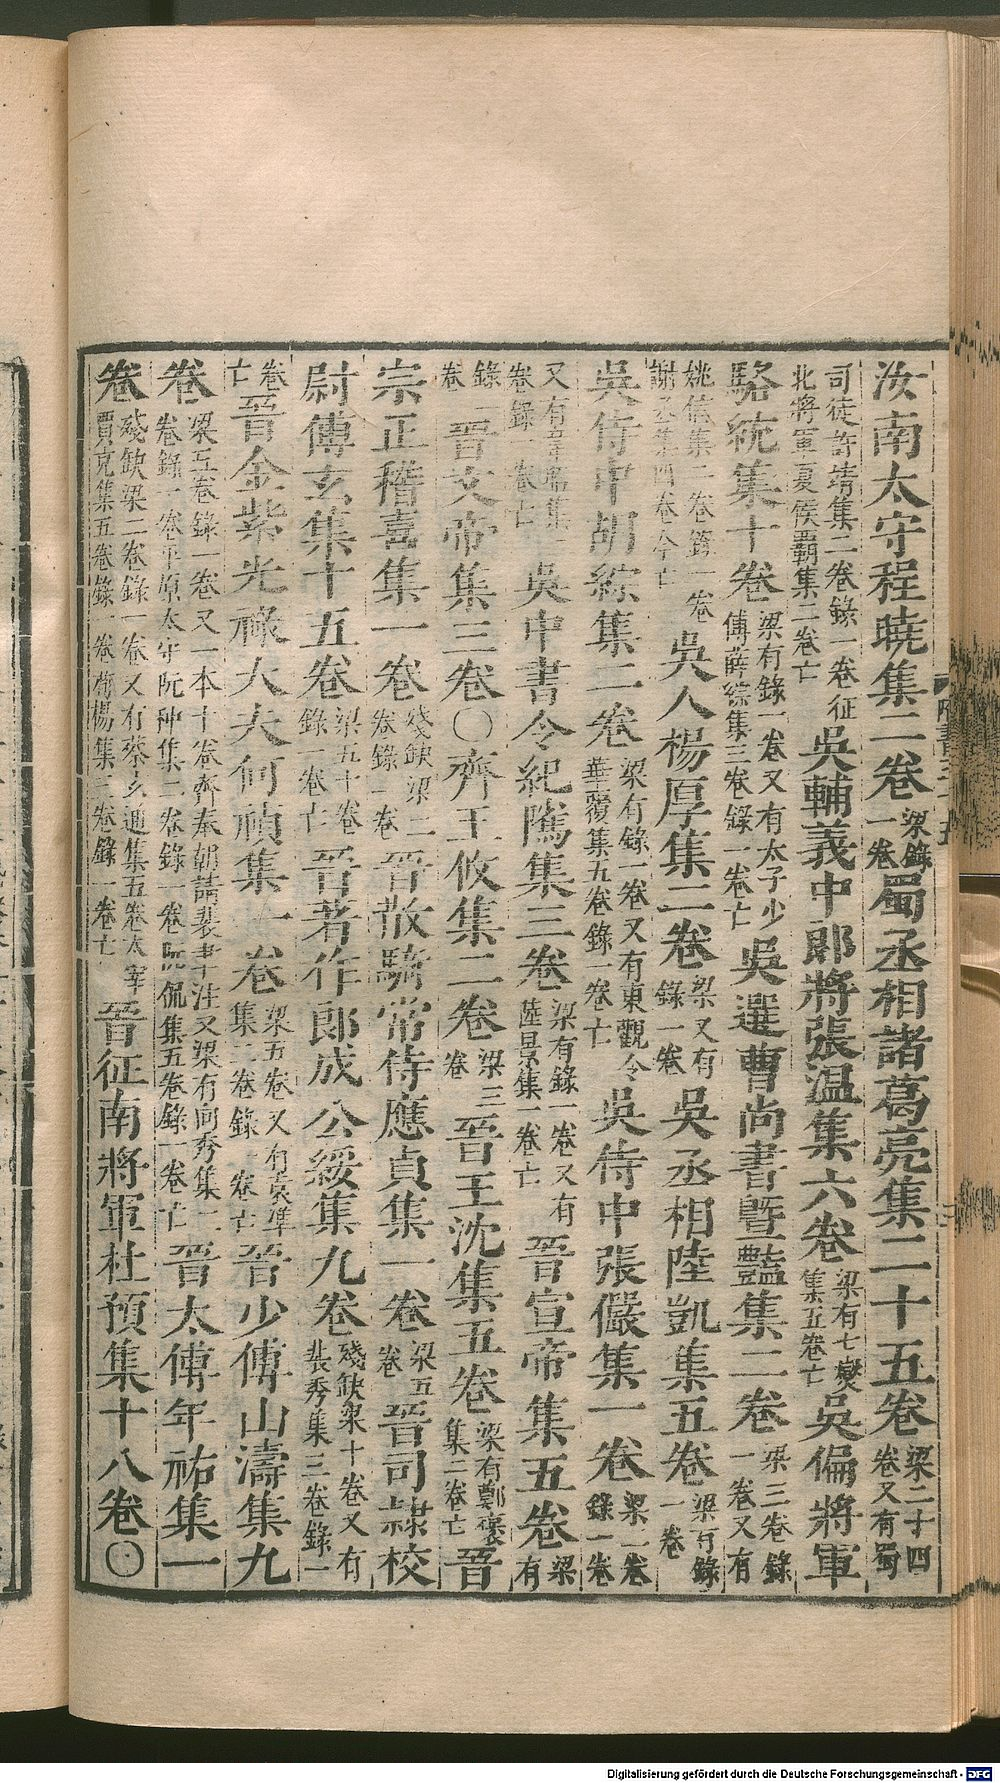 汝南太守程曉集二卷梁錄一卷蜀丞相諸葛亮集二十五卷梁二十四卷又有蜀
司徒許靖集二卷錄一卷征北將軍夏侯霸集二卷亡吳輔義中郎將張溫集六卷梁有士燮集五卷亡吳偏將軍
駱統集十卷梁有錄一卷又有太子少傅薛綜集三卷錄一卷亡吳選曹尚書暨豔集二卷梁三卷錄一卷又有
姚信集二卷錄一卷謝承集四卷今亡吳人楊厚集二卷梁又有錄一卷吳丞相陸凱集五卷梁有錄一卷
吳侍中胡綜集二卷梁有錄一卷又有東觀令華覈集九卷錄一卷亡吳侍中張儼集一卷梁一卷錄一卷
又有韋昭集二卷錄一卷亡吳中書令紀隲集三卷梁有錄一卷又有陸景集一卷亡晉宣帝集五卷梁有
錄一卷晉文帝集三卷〇齊王攸集二卷梁三卷晉王沈集五卷梁有鄭袤集二卷亡晉
宗正嵇喜集一卷殘缺梁二卷錄一卷晉散騎常侍應貞集一卷梁五卷晉司隸校
尉傅玄集十五卷梁五十卷錄一卷亡晉著作郎成公綏集九卷殘缺梁十卷又有裴秀集三卷錄一
卷亡晉金紫光祿大夫何禎集一卷梁五卷又有袁準集二卷錄一卷亡晉少傅山濤集九
卷梁五卷錄一卷又一本十卷齊奉朝請裴聿注又梁有向秀集二卷錄一卷平原太守阮种集二卷錄一卷阮侃集五卷錄一卷亡晉太傅年祐集一
卷殘缺梁二卷錄一卷又有蔡玄通集五卷太宰賈充集五卷錄一卷荀楊集三卷錄一卷亡晉征南將軍杜預集十八卷〇
Digitalisierung gefördert durch die Deutsche Forschungsgemeinschaft - DFG